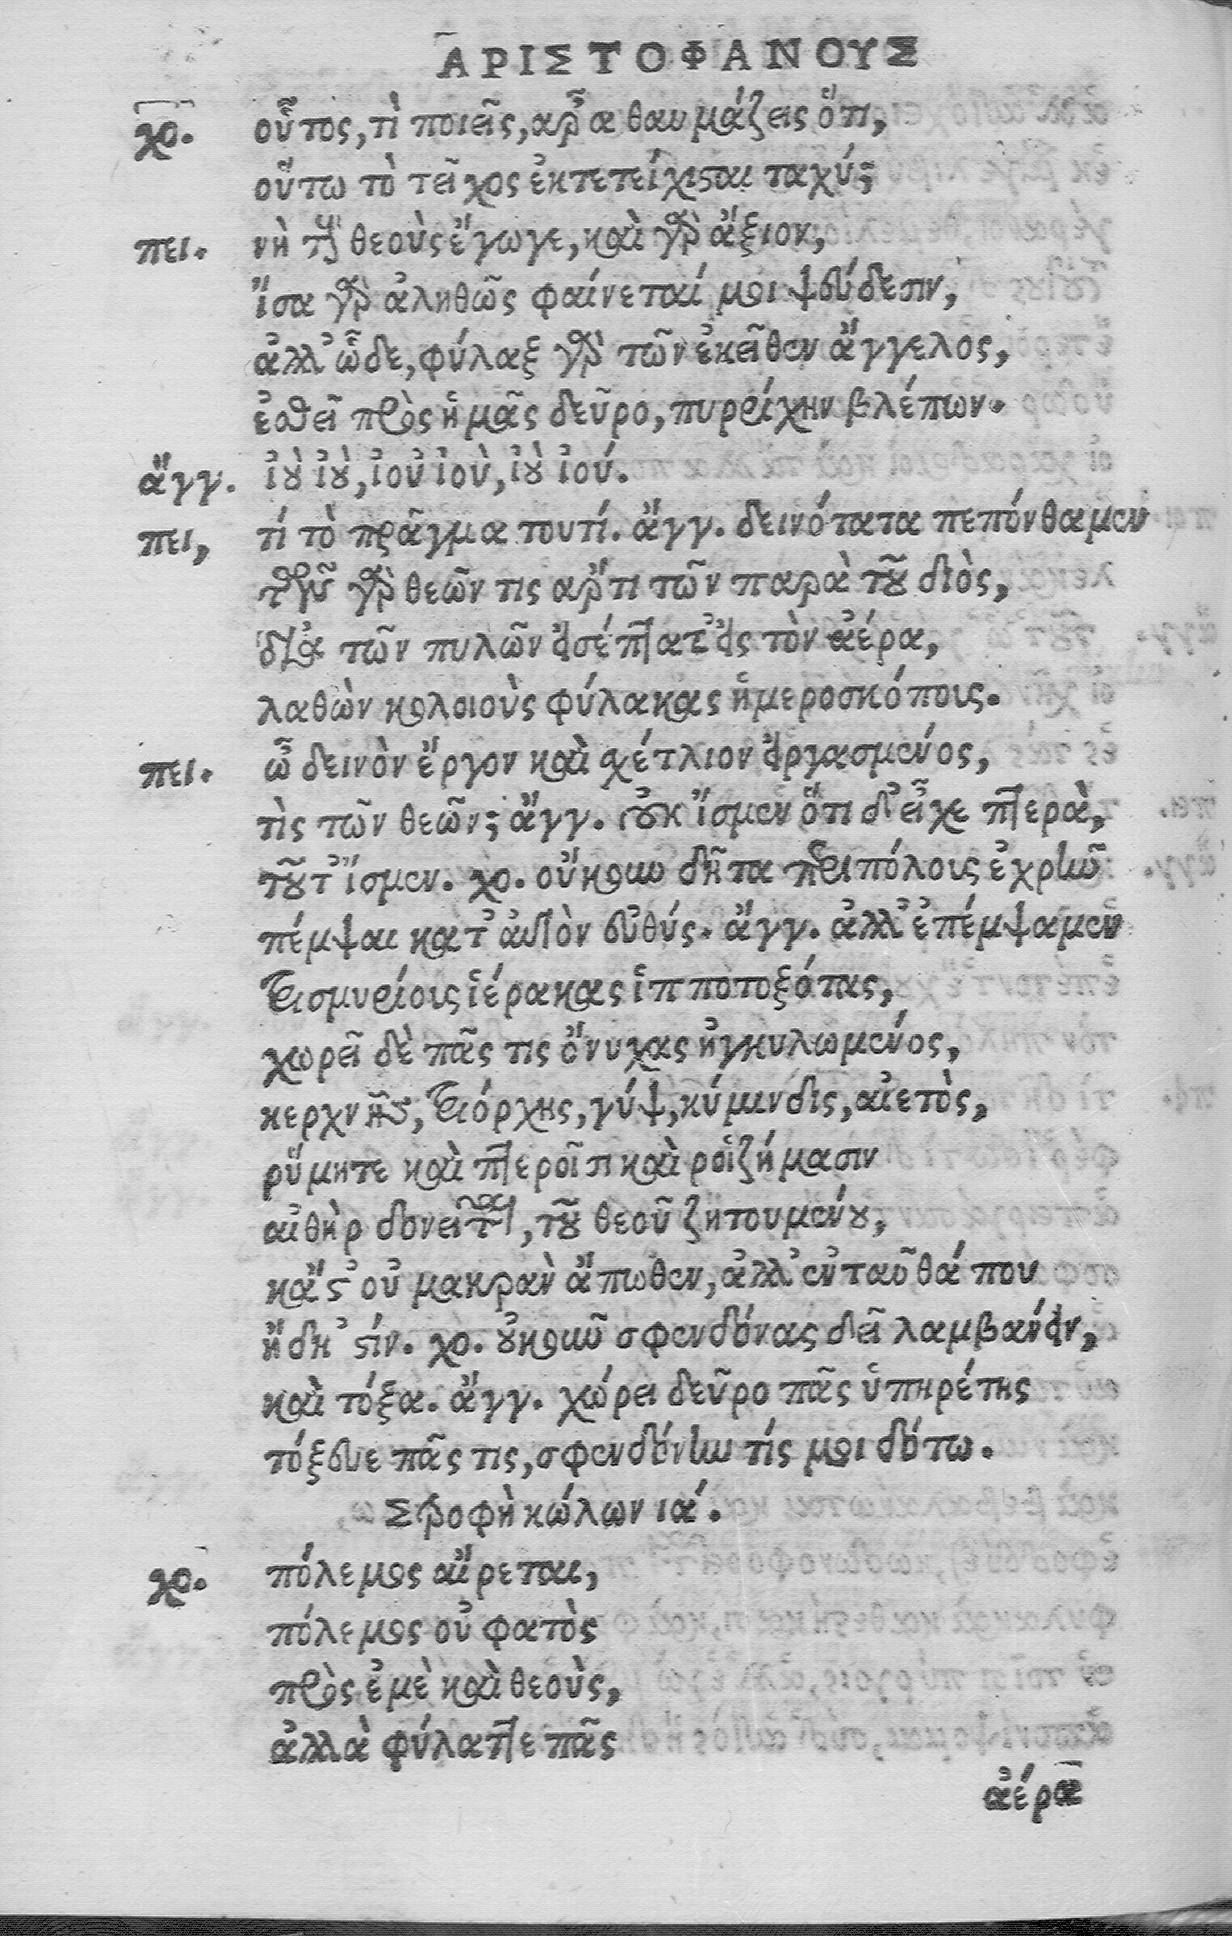 ΑΡΙΣΤΟΦΑΝΟΥΣ
χο. οὗτος, τί ποιεῖς, ἆρα θαυμάζεις ὅτι,
οὕτω τὸ τεῖχος ἐκτετείχισται ταχύ;
πει. νὴ τοὺς θεοὺς ἔγωγε, καὶ γὰρ ἄξιον,
ἴσα γὰρ ἀληθῶς φαίνεταί μοι ψεύδεσιν,
ἀλλ' ὧδε, φύλαξ γὰρ τῶν ἐκεῖθεν ἄγγελος,
ἐσθεῖ πρὸς ἡμᾶς δεῦρο, πυρρίχην βλέπων.
ἄγγ. ἰοὺ ἰοὺ, ἰοὺ ἰοὺ, ἰοὺ ἰού.
πει, τί τὸ πρᾶγμα τουτί. ἄγγ. δεινότατα πεπόνθαμεν
τῶν γὰρ θεῶν τις ἄρτι τῶν παρὰ τοῦ διὸς,
διὰ τῶν πυλῶν εἰσέπτατ' εἰς τὸν ἀέρα,
λαθὼν κολοιοὺς φύλακας ἡμεροσκόπους.
πει. ὦ δεινὸν ἔργον καὶ σχέτλιον εἰργασμένος,
τὶς τῶν θεῶν; ἄγγ. οὐκ ἴσμεν ὅτι δ' εἶχε πτερὰ,
τοῦτ' ἴσμεν. χο. οὔκουν δῆτα περιπόλους ἐχρῆν
πέμψαι κατ' αὐτὸν εὐθύς. ἄγγ. ἀλλ' ἐπέμψαμεν
τρισμυρίους ἱέρακας ἱπποτοξότας,
χωρεῖ δὲ πᾶς τις ὄνυχας ἠγκυλωμένος,
κερχνῂς, τριόρχης, γύψ, κύμινδις, αἰετὸς,
ῥύμητε καὶ πτεροῖσι καὶ ῥοιζήμασιν
αἰθὴρ δονεῖται, τοῦ θεοῦ ζητουμένου,
κἄστ' οὐ μακρὰν ἄπωθεν, ἀλλ' ἐνταῦθά που
ἤδη 'στίν. χο. οὐκοῦν σφενδόνας δεῖ λαμβάνειν,
καὶ τόξα. ἄγγ. χώρει δεῦρο πᾶς ὑπηρέτης
τόξευε πᾶς τις, σφενδόνην τίς μοι δότω.
Στροφὴ κώλων ια'.
χο. πόλεμος αἴρεται,
πόλεμος οὐ φατὸς
πρὸς ἐμὲ καὶ θεοὺς,
ἀλλὰ φύλαττε πᾶς
ἀέρα